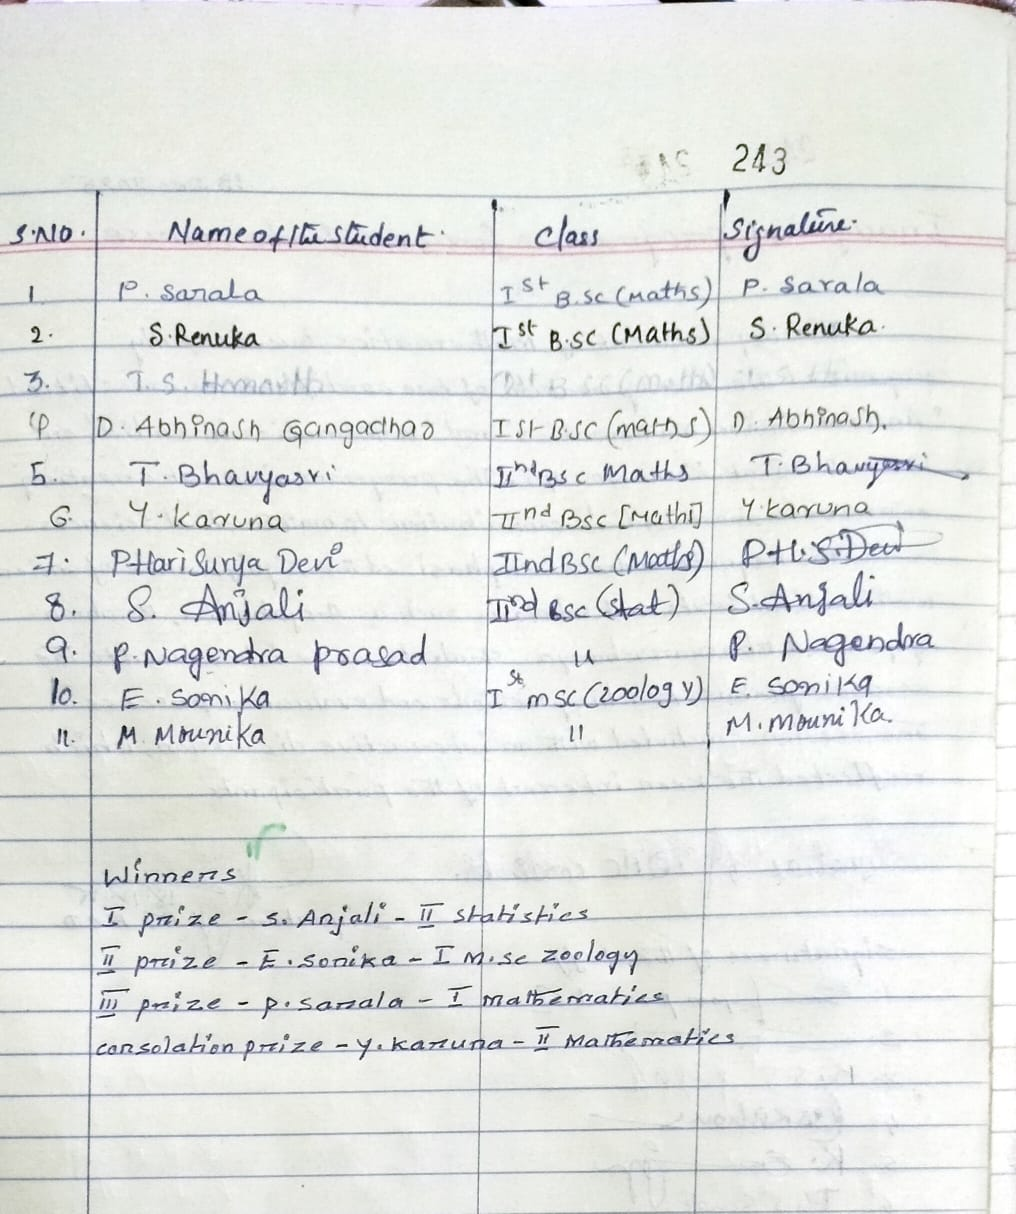 243
S.No. Name of the student. Class Signature.
1 P. Sarala Ist B.sc (Maths) P. Sarala
2. S.Renuka Ist B.sc (Maths) S. Renuka.
3. T. S.
4 D. Abhinash Gangadhao Ist B.sc (maths) D. Abhinash.
5. T. Bhavyasri IIndBsc Maths T. Bhavyasri
6. Y. karuna IInd Bsc [Maths] Y. karuna
7. P Hari Surya Devi IIndBSC (Maths) P.H.S.Devi
8. S. Anjali IInd Bsc (stat) S. Anjali
9. P. Nagendra prasad 〃 P. Nagendra
10. E. Sonika Ist msc (zoology) E. Sonika
11. M. Mounika 〃 M. Mounika.
Winners
I prize - S. Anjali - II statistics
II prize - E. sonika - I M.sc zoology
III prize - p. sarala - I mathematics
consolation prize - y. karuna - II Mathematics